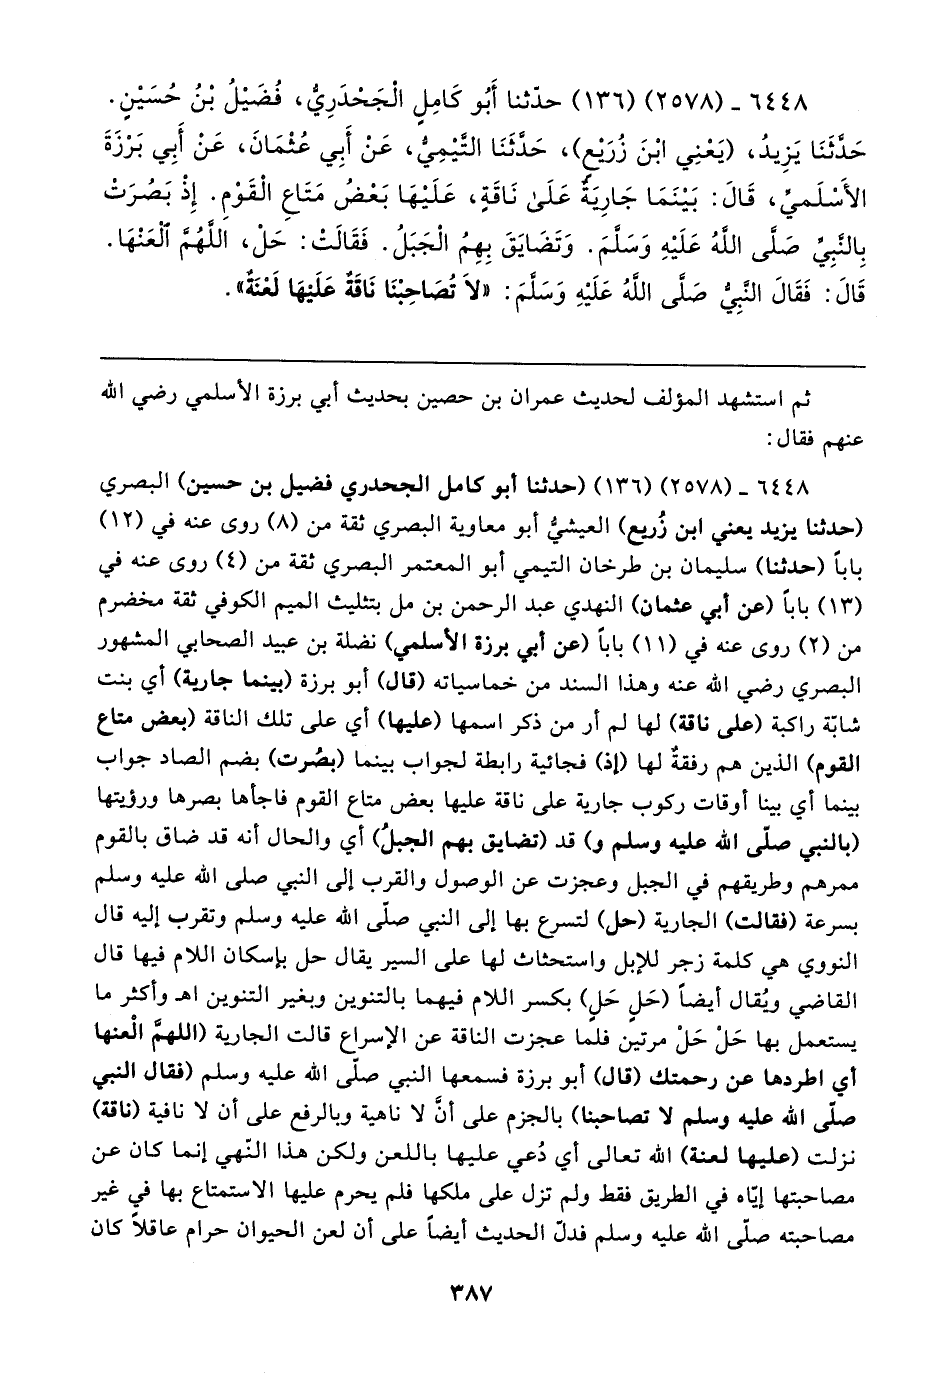 ٦٤٤٨ ـ (٢٥٧٨) (١٣٦) حدّثنا أَبُو كَامِلٍ الْجَحْدَرِيُّ، فُضَيْلُ بْنُ حُسَيْنٍ.
حَدَّثَنَا يَزِيدُ، (يَعْنِي ابْنَ زُرَيْعٍ)، حَدَّثَنَا التَّيْمِيُّ، عَنْ أَبِي عُثْمَانَ، عَنْ أَبِي بَرْزَةَ
الأَسْلَمِيِّ، قَالَ: بَيْنَمَا جَارِيَةٌ عَلَىٰ نَاقَةٍ، عَلَيْهَا بَعْضُ مَتَاعِ الْقَوْمِ. إِذْ بَصُرَتْ
بِالنَّبِيِّ صَلَّى اللَّهُ عَلَيْهِ وَسَلَّمَ. وَتَضَايَقَ بِهِمُ الْجَبَلُ. فَقَالَتْ: حَلْ، اللَّهُمَّ الْعَنْهَا.
قَالَ: فَقَالَ النَّبِيُّ صَلَّى اللَّهُ عَلَيْهِ وَسَلَّمَ: «لاَ تُصَاحِبْنَا نَاقَةٌ عَلَيْهَا لَعْنَةٌ».
ثم استشهد المؤلف لحديث عمران بن حصين بحديث أبي برزة الأسلمي رضي الله
عنهم فقال:
٦٤٤٨ ـ (٢٥٧٨) (١٣٦) (حدثنا أبو كامل الجحدري فضيل بن حسين) البصري
(حدثنا يزيد يعني ابن زُريع) العيشيُّ أبو معاوية البصري ثقة من (٨) روى عنه في (١٢)
باباً (حدثنا) سليمان بن طرخان التيمي أبو المعتمر البصري ثقة من (٤) روى عنه في
(١٣) باباً (عن أبي عثمان) النهدي عبد الرحمن بن مل بتثليث الميم الكوفي ثقة مخضرم
من (٢) روى عنه في (١١) باباً (عن أبي برزة الأسلمي) نضلة بن عبيد الصحابي المشهور
البصري رضي الله عنه وهذا السند من خماسياته (قال) أبو برزة (بينما جارية) أي بنت
شابّة راكبة (على ناقة) لها لم أر من ذكر اسمها (عليها) أي على تلك الناقة (بعض متاع
القوم) الذين هم رفقةٌ لها (إذ) فجائية رابطة لجواب بينما (بصُرت) بضم الصاد جواب
بينما أي بينا أوقات ركوب جارية على ناقة عليها بعض متاع القوم فاجأها بصرها ورؤيتها
(بالنبي صلّى الله عليه وسلم و) قد (تضايق بهم الجبلُ) أي والحال أنه قد ضاق بالقوم
ممرهم وطريقهم في الجبل وعجزت عن الوصول والقرب إلى النبي صلى الله عليه وسلم
بسرعة (فقالت) الجارية (حل) لتسرع بها إلى النبي صلّى الله عليه وسلم وتقرب إليه قال
النووي هي كلمة زجر للإبل واستحثاث لها على السير يقال حل بإسكان اللام فيها قال
القاضي ويُقال أيضاً (حَلٍ حَلٍ) بكسر اللام فيهما بالتنوين وبغير التنوين اهـ وأكثر ما
يستعمل بها حَلْ حَلْ مرتين فلما عجزت الناقة عن الإسراع قالت الجارية (اللهمَّ الْعنها
أي اطردها عن رحمتك (قال) أبو برزة فسمعها النبي صلّى الله عليه وسلم (فقال النبي
صلّى الله عليه وسلم لا تصاحبنا) بالجزم على أنَّ لا ناهية وبالرفع على أن لا نافية (ناقة)
نزلت (عليها لعنة) الله تعالى أي دُعي عليها باللعن ولكن هذا النّهي إنما كان عن
مصاحبتها إيّاه في الطريق فقط ولم تزل على ملكها فلم يحرم عليها الاستمتاع بها في غير
مصاحبته صلّى الله عليه وسلم فدلّ الحديث أيضاً على أن لعن الحيوان حرام عاقلاً كان
٣٨٧